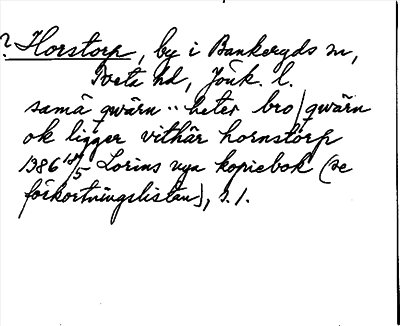 ? Horstorp, by i Bankeryds sn,
Tveta hd, Jönk. l.
sama qwärn .. heter bro/qwärn
ok ligger vithär hornstorp
1386 18/5 Lorins nya kopiebok (se
förkortningslistan), s. 1.